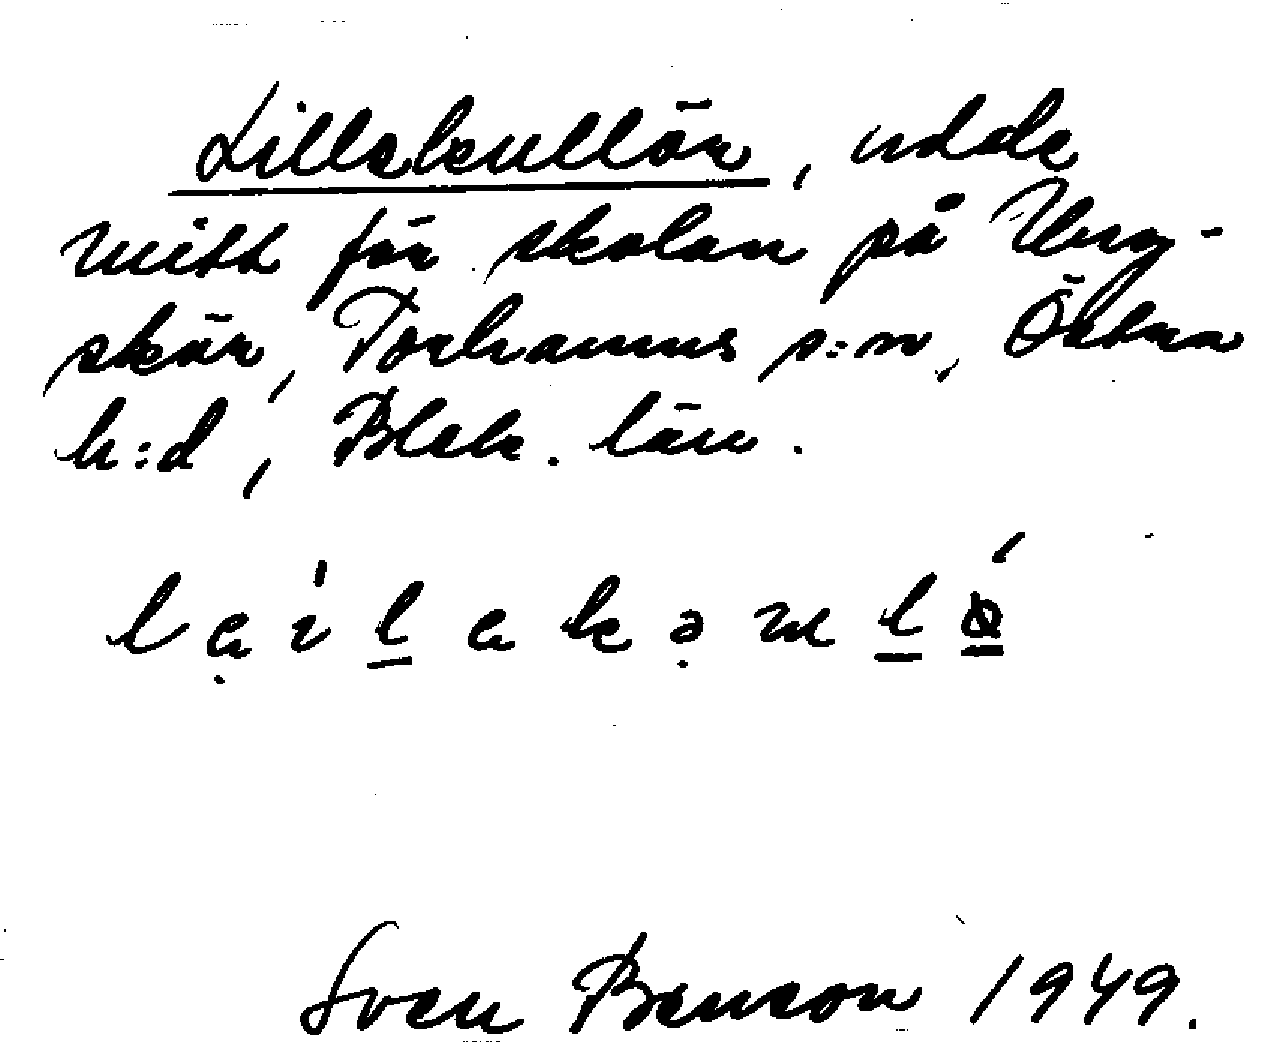 Lillekullön, udde
mitt för skolan på Ung-
skär, Torhamns s:n, Östra
h:d, Blek. län.
Sven Benson 1949.